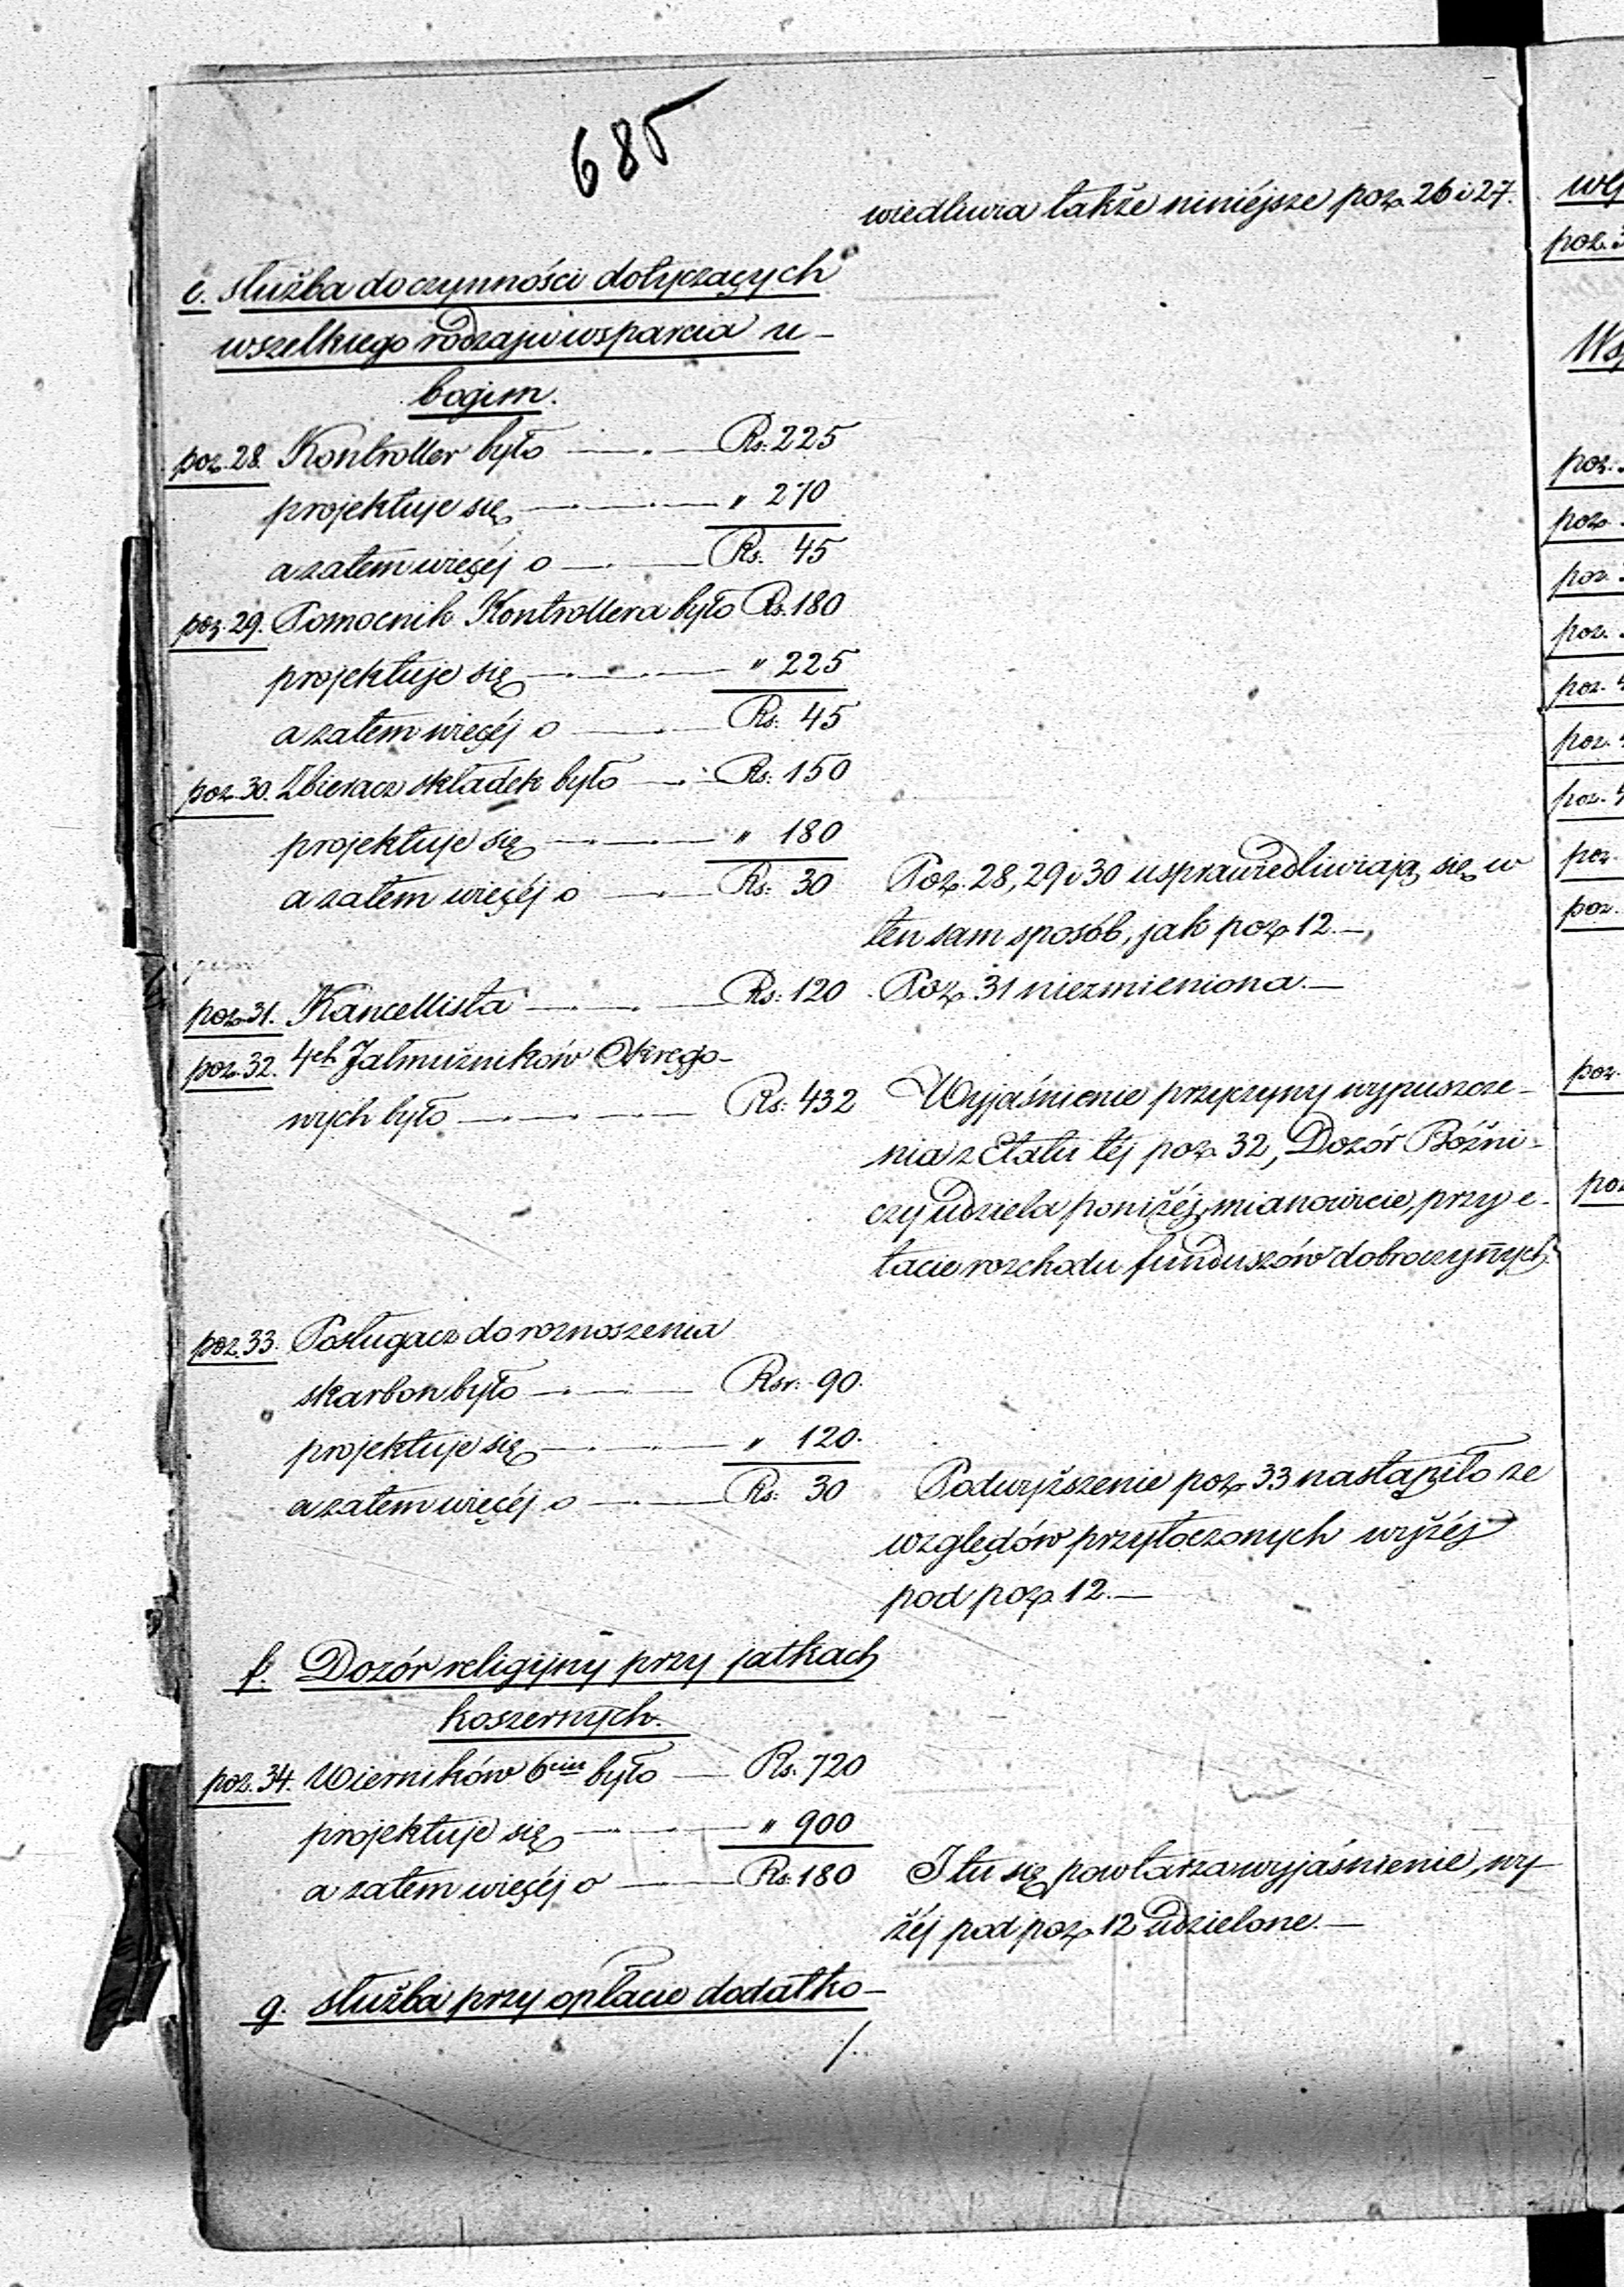 685
wiedliwia także niniéjsze poz. 26 i 27.
e. służba do czynności dotyczących
wszelkiego rodzaju wsparcia u-
bogim.
poz. 28. Kontroller było —·— Rs: 225
projektuje się —·— " 270
a zatem więcéj o —·— Rs: 45
poz. 29. Pomocnik Kontrollera było Rs. 180
projektuje się —·— " 225
a zatem więcéj o —·— Rs: 45
poz. 30. Zbieracz składek było —·— Rs: 150
projektuje się —·— " 180
a zatem więcéj o —·— Rs: 30
Poz. 28, 29 i 30 usprawiedliwiają się w
ten sam sposób, jak poz. 12.—
poz. 31. Kancellista —·— Rs: 120
Poz. 31 niezmieniona.—
poz. 32. 4ch Jałmużników Okręgo-
wych było —·— Rs: 432
Wyjaśnienie przyczyny wypuszcze-
nia z Etatu téj poz. 32, Dozór Bóźni-
czy udziela poniżéj, mianowicie, przy e-
tacie rozchodu funduszów dobroczynnych.
poz. 33. Posługacz do roznoszenia
skarbon było —·— Rsr: 90.
projektuje się —·— " 120.
a zatem więcéj o —·— Rs: 30
Podwyższenie poz. 33 nastąpiło ze
względów przytoczonych wyżéj
pod poz. 12.—
f. Dozór religijny przy jatkach
koszernych.
poz. 34. Wierników 6ciu było — Rs. 720
projektuje się —·— " 900
a zatem więcéj o — Rs. 180
I tu się powtarza wyjaśnienie, wy-
żéj pod poz. 12 udzielone.—
g. służba przy opłacie dodatko-
/.
poz.
poz.
poz.
poz.
poz.
poz.
poz.
poz.
poz.
poz.
poz.